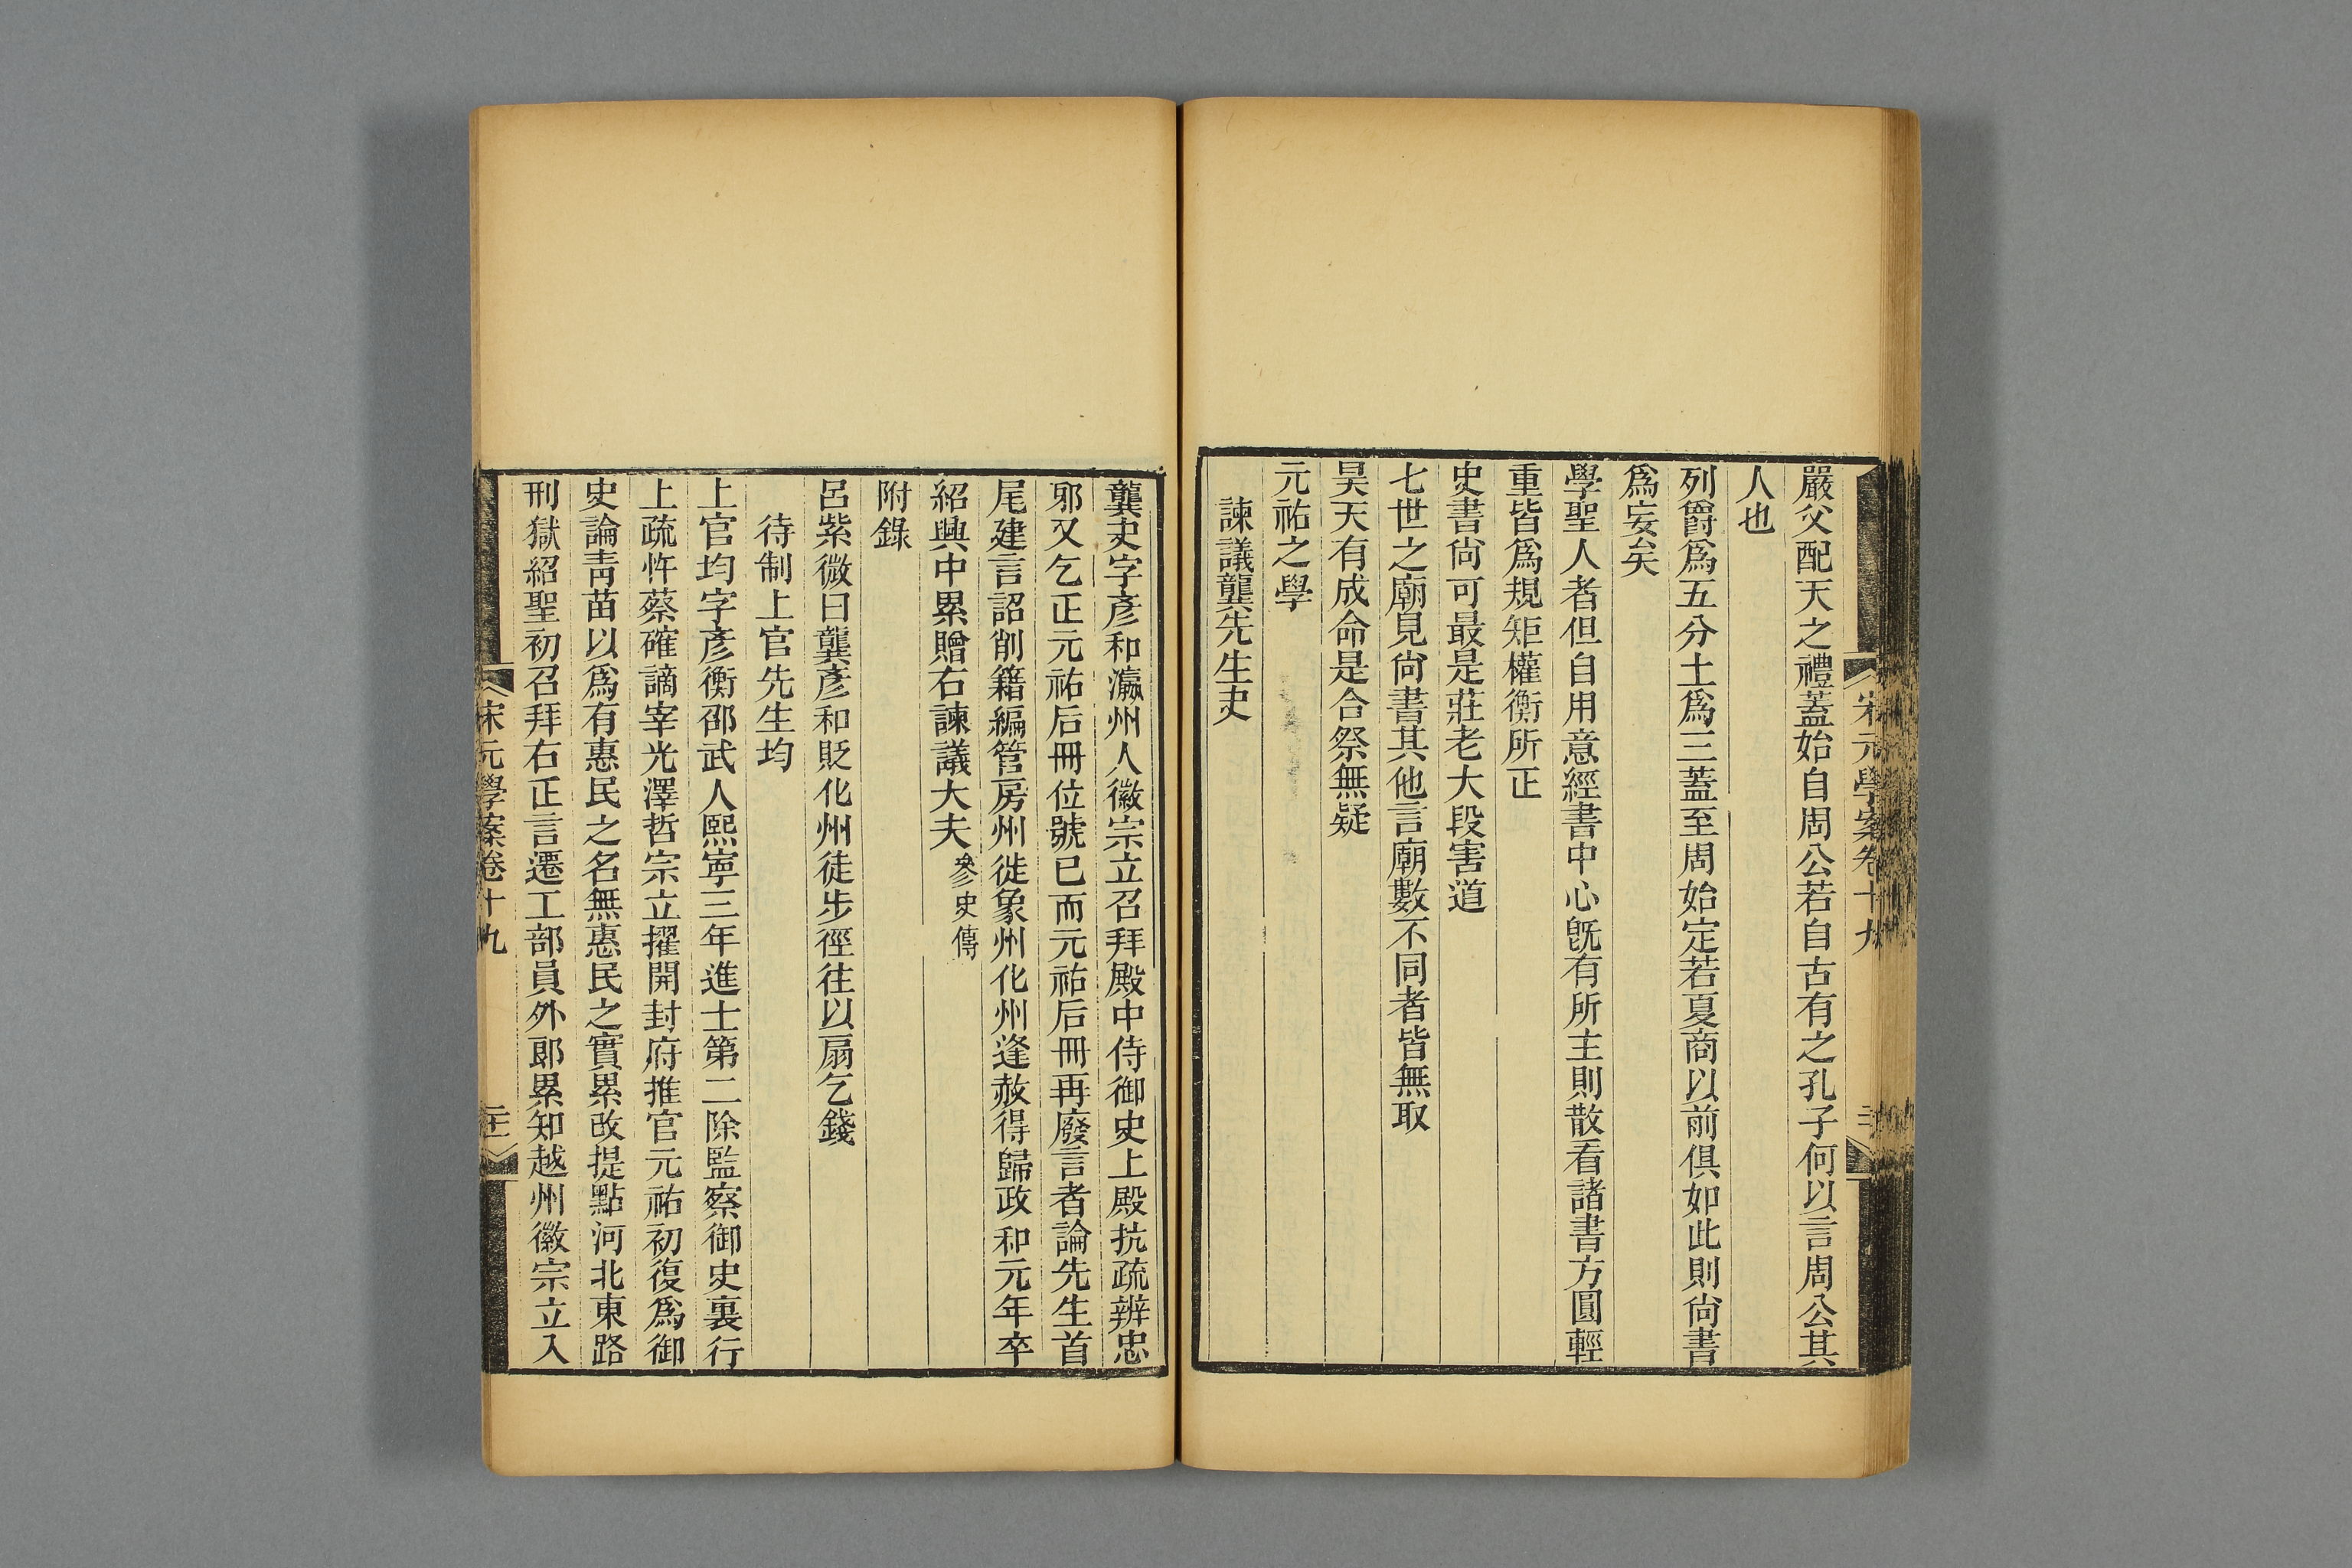 嚴父配天之禮蓋始自周公若自古有之孔子何以言周公其
人也
列爵爲五分土爲三蓋至周始定若夏商以前俱如此則尚書
爲妄矣
學聖人者但自用意經書中心旣有所主則散看諸書方圓輕
重皆爲規矩權衡所正
史書尚可最是莊老大段害道
七世之廟見尚書其他言廟數不同者皆無取
昊天有成命是合祭無疑
元祐之學
諫議龔先生夬
龔夬字彥和瀛州人徽宗立召拜殿中侍御史上殿抗疏辨忠
邪又乞正元祐后冊位號已而元祐后冊再廢言者論先生首
尾建言詔削籍編管房州徙象州化州逢赦得歸政和元年卒
紹興中累贈右諫議大夫參史傳
附錄
呂紫微曰龔彥和貶化州徒步徑往以扇乞錢
待制上官先生均
上官均字彥衡邵武人熙寧三年進士第二除監察御史裏行
上疏忤蔡確謫宰光澤哲宗立擢開封府推官元祐初復爲御
史論靑苗以爲有惠民之名無惠民之實累改提點河北東路
刑獄紹聖初召拜右正言遷工部員外郎累知越州徽宗立入
宋元學案卷十九